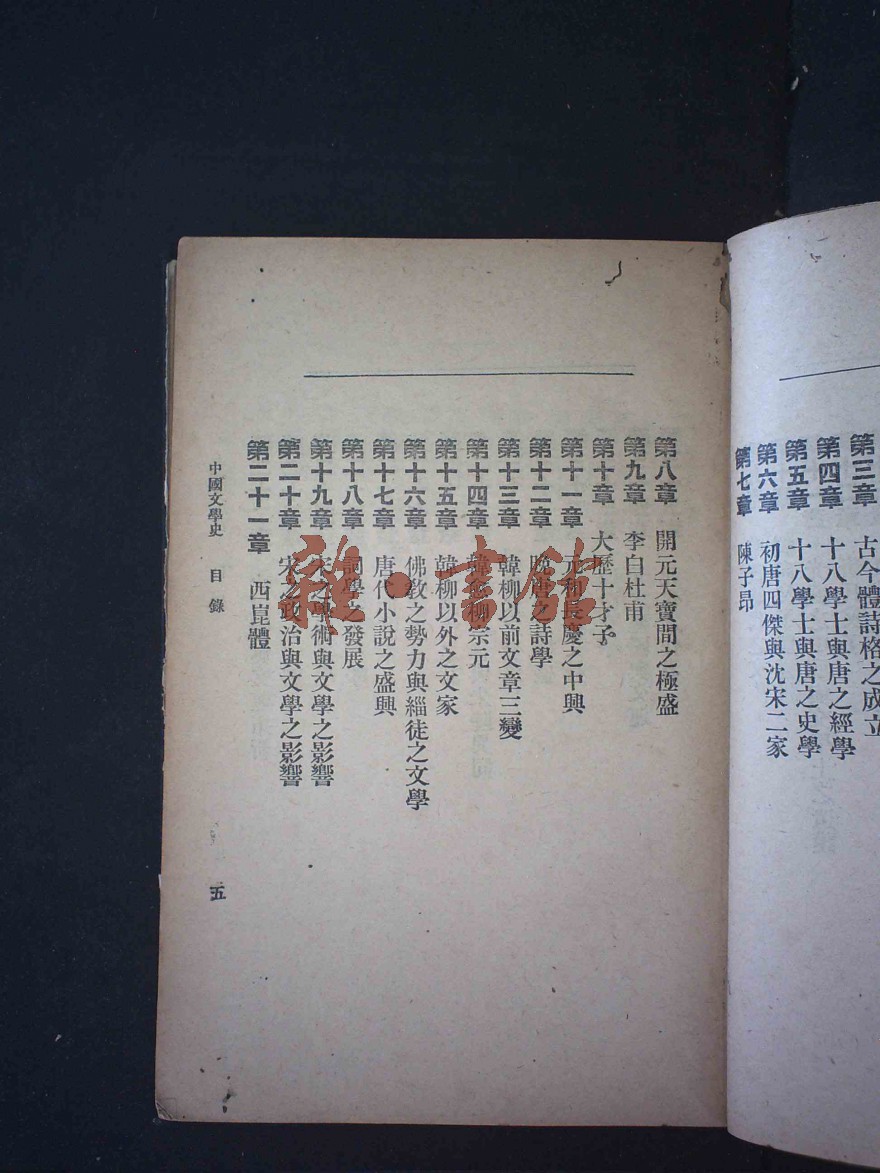 第三章 古今體詩格之成立
第四章 十八學士與唐之經學
第五章 十八學士與唐之史學
第六章 初唐四傑與沈宋二家
第七章 陳子昂
第八章 開元天寶間之極盛
第九章 李白杜甫
第十章 大歷十才子
第十一章 元和長慶之中興
第十二章 晚唐之詩學
第十三章 韓柳以前文章三變
第十四章 韓愈柳宗元
第十五章 韓柳以外之文家
第十六章 佛教之勢力與緇徒之文學
第十七章 唐代小說之盛興
第十八章 詞學之發展
第十九章 宋之學術與文學之影響
第二十章 宋之政治與文學之影響
第二十一章 西崑體
中國文學史 目錄
五
雅·書館